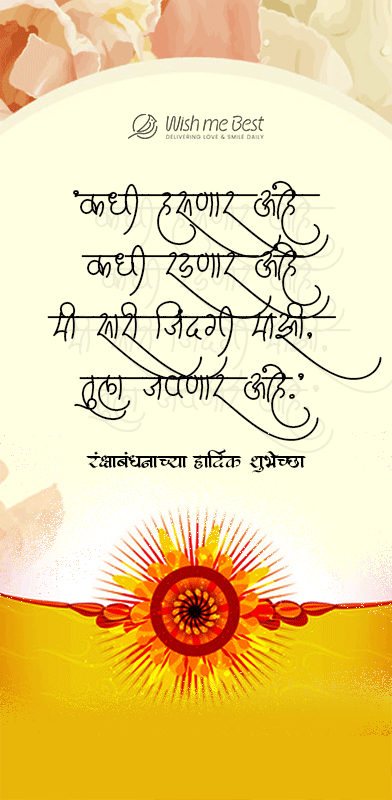 Wish me Best
DELIVERING LOVE & SMILE DAILY
'कधी हसणार आहे
कधी रडणार आहे
मी सारी जिंदगी माझी.
तुला जपणार आहे.'
रंक्षाबंधनाच्या हार्दिक शुभेच्छा